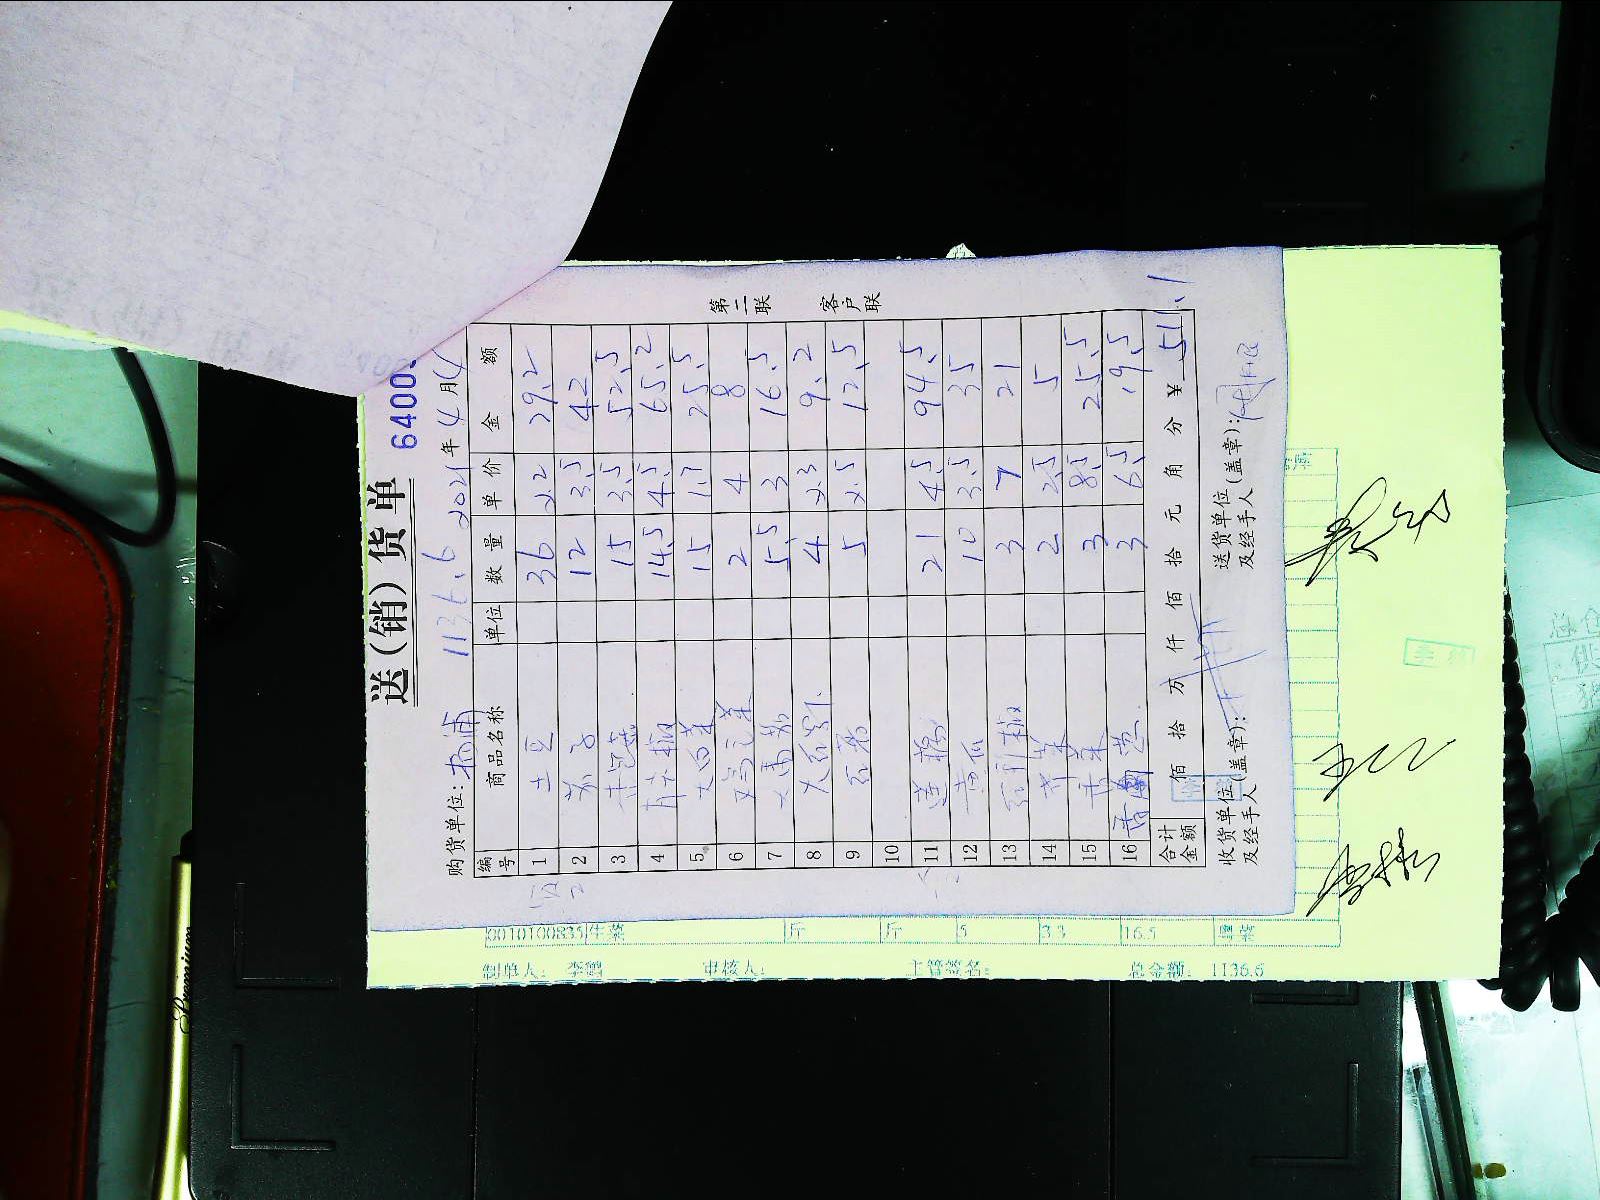 第二联 客户联
送（销）货单 6400
1136.6 2021年4月4
购货单位：杨浦
编号 商品名称 单位 数量 单价 金额
1 土豆 36 2.2 79.2
2 茄子 12 3.5 42
3 杏鲍菇 15 3.5 52.5
4 青尖椒 14.5 4.5 65.2
5 大白菜 15 1.7 25.5
6 娃娃菜 2 4 8
7 5.5 3 16.5
8 4 2.3 9.2
9 5 2.5 12.5
10
11 莲藕 21 4.5 94.5
12 黄瓜 10 3.5 35
13 红小椒 3 7 21
14 芹菜 2 2.5 5
15 香菜 3 8.5 25.5
16 香葱 3 6.5 19.5
合计金额 佰 拾 万 仟 佰 拾 元 角 分 ¥ 511.1
收货单位（盖章）： 及经手人
送货单位（盖章）： 及经手人
0010100835 牛蒡 斤 斤 5 3.3 16.5
制单人： 审核人： 主管签名： 总金额： 1136.6
Premium